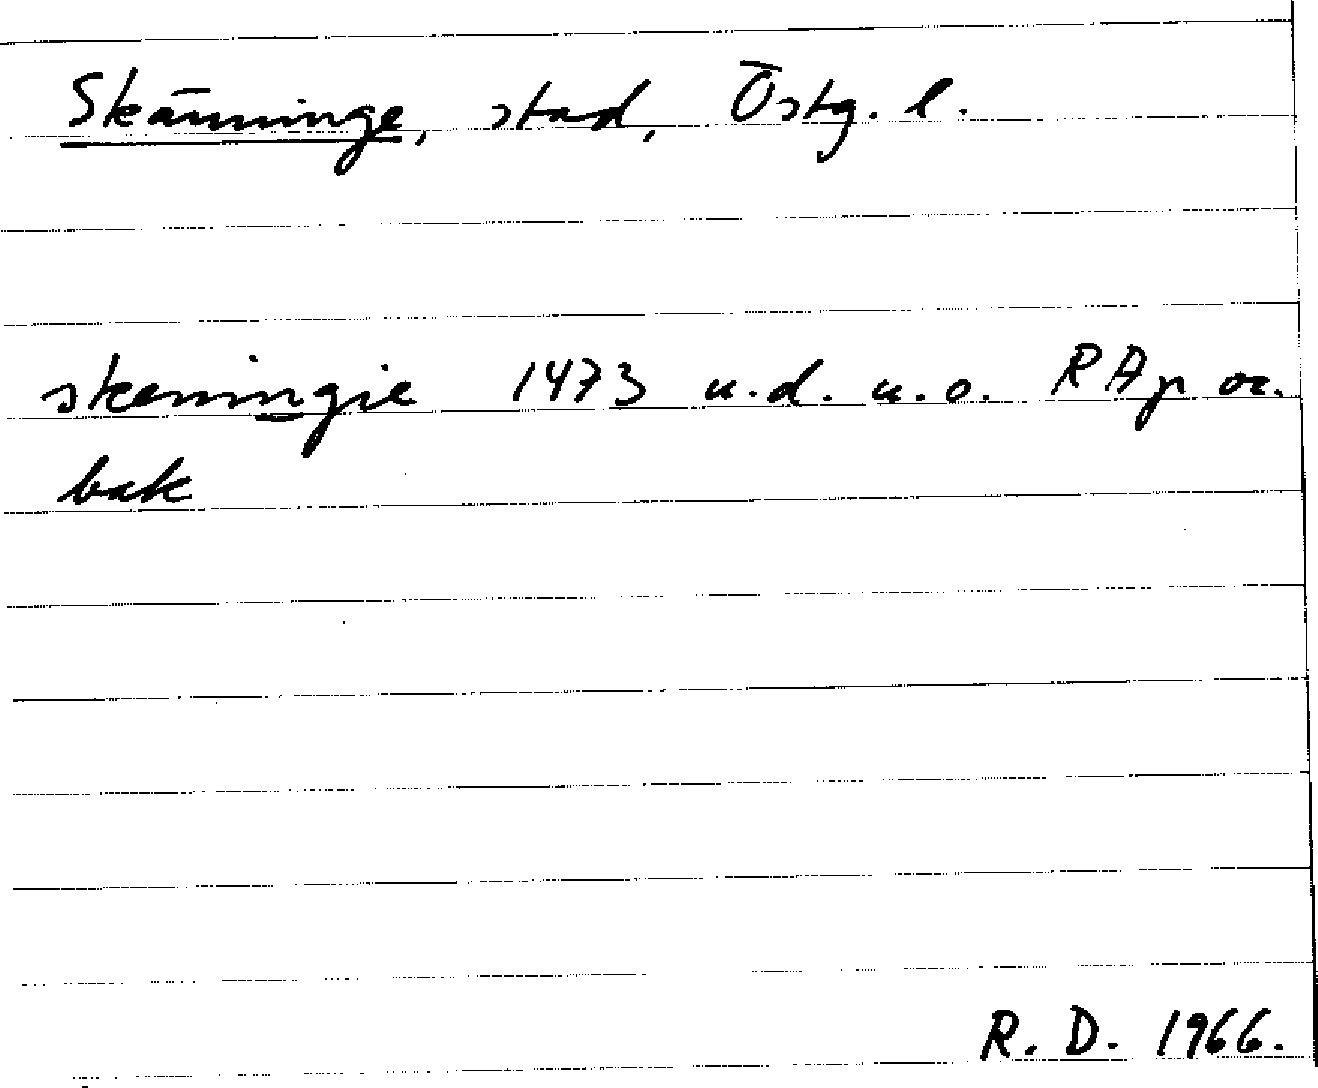 Skänninge, stad, Östg. l.
skeningie 1473 u.d. u.o. RAp or.
bak
R. D. 1966.